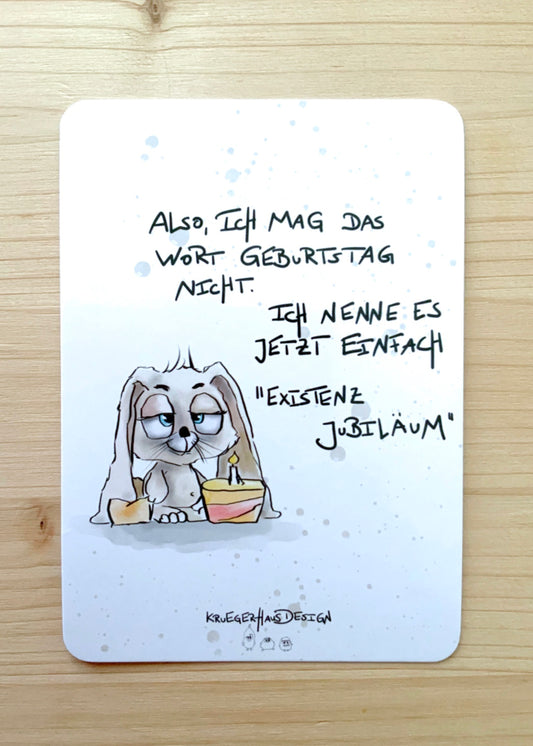 ALSO, ICH MAG DAS
WORT GEBURTSTAG
NICHT.
ICH NENNE ES
JETZT EINFACH
"EXISTENZ
JUBILÄUM"
KRUEGERHAUSDESIGN